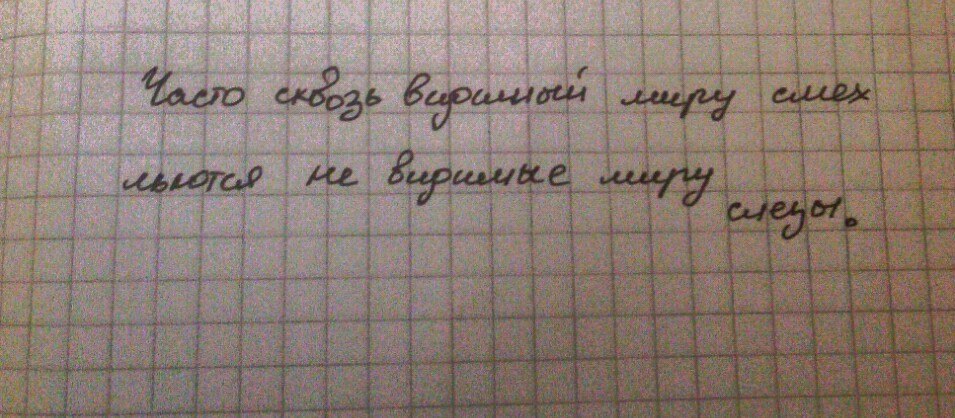 Часто сквозь видимый миру смех
льются не видимые миру
слезы.